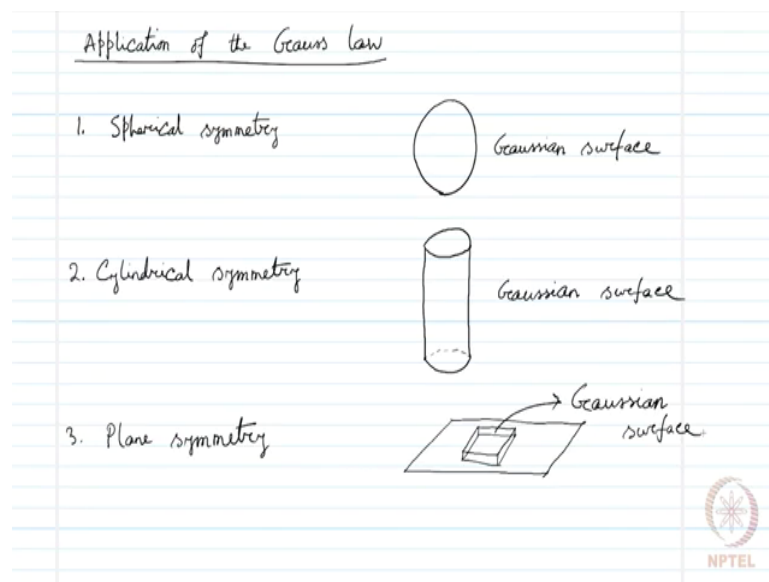 Application of the Gauss law
1. Spherical symmetry
Gaussian surface
2. Cylindrical symmetry
Gaussian surface
3. Plane symmetry
Gaussian
surface
NPTEL